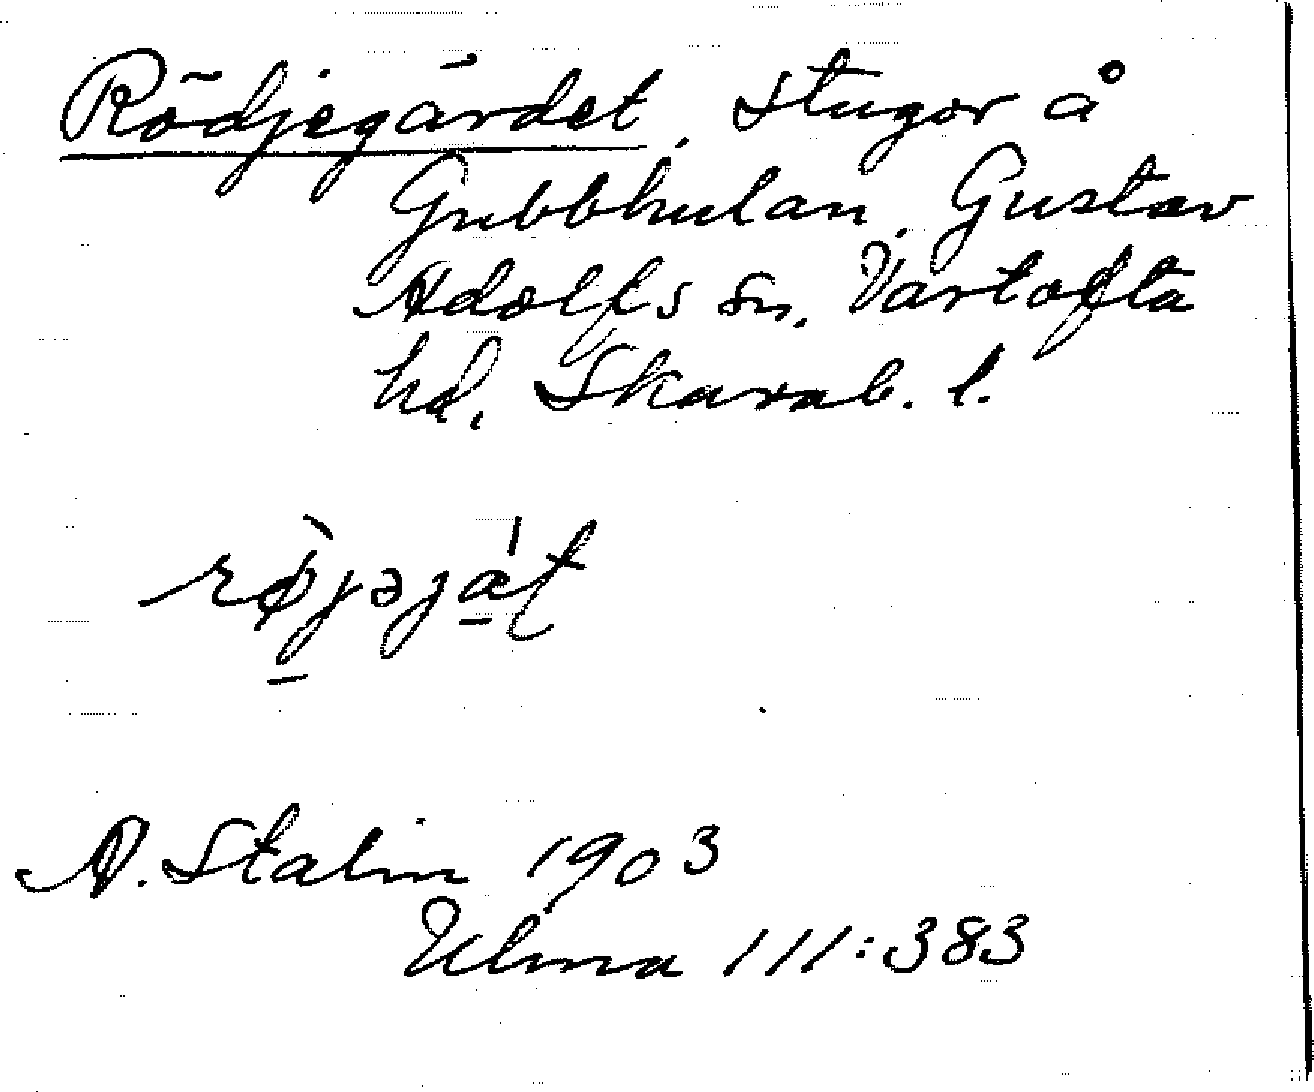 Rödjegärdet. Stugor å
Gubbhulan. Gustav
Adolfs sn. Vartofta
hd. Skarab. l.
A. Stalin 1903
Ulma 111:383